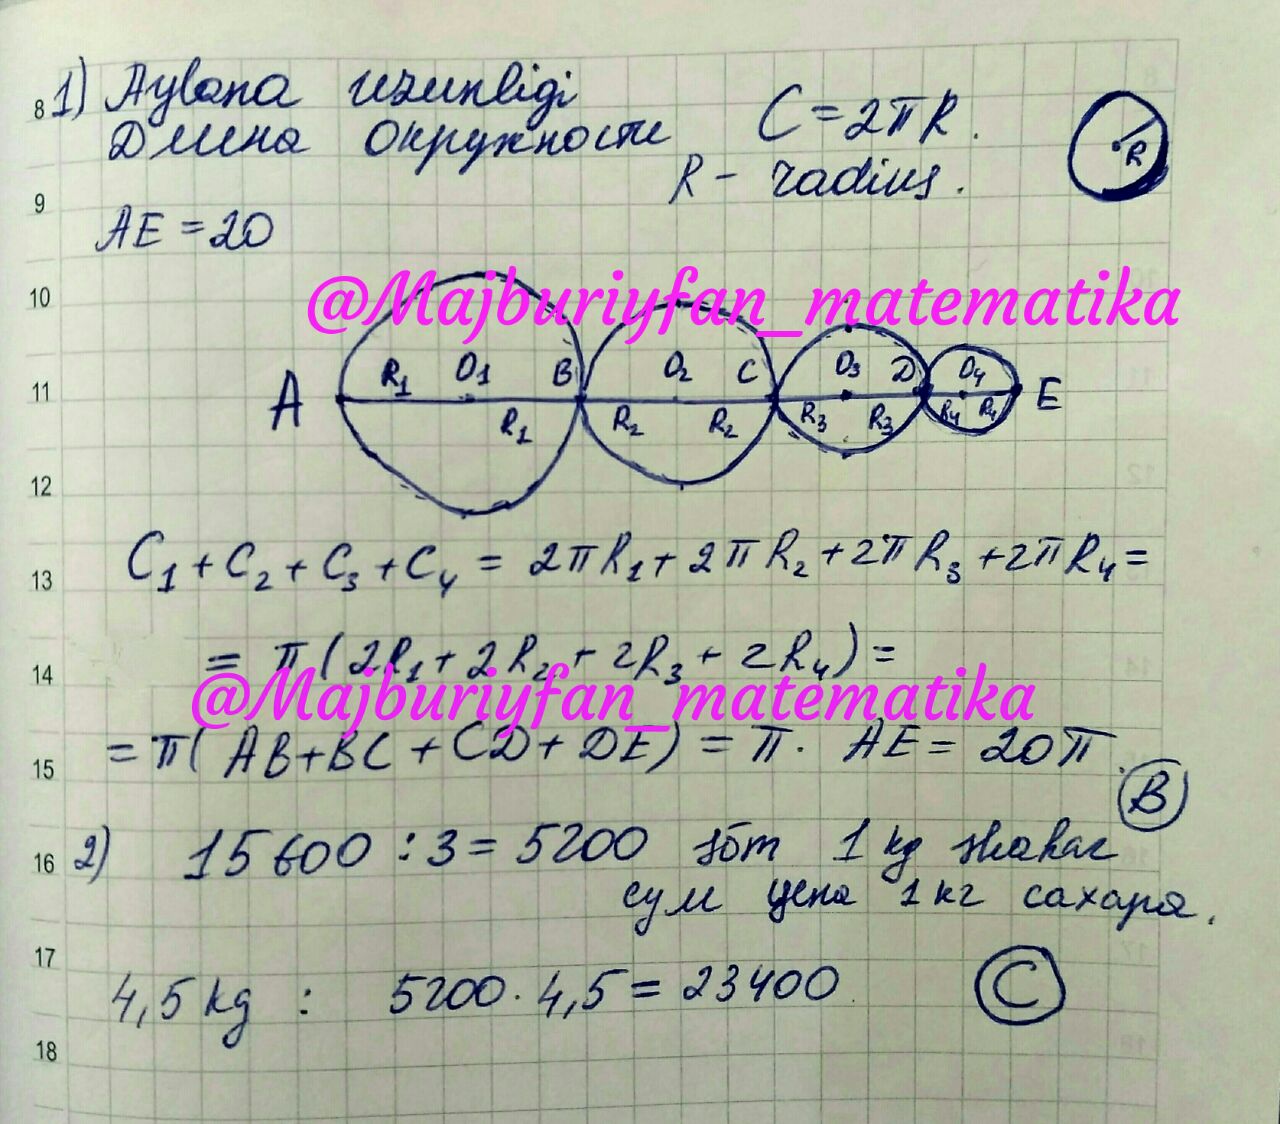 8
1) Aylana uzunligi
Длина окружности
C = 2πR.
R
R - radius.
9
AE = 20
10
@Majburiyfan_matematika
11
A R₁ O₁ B O₂ C O₃ D O₄ E
R₁ R₂ R₂ R₃ R₃ R₄ R₄
12
C₁ + C₂ + C₃ + C₄ = 2πR₁ + 2πR₂ + 2πR₃ + 2πR₄ =
13
= π(2R₁ + 2R₂ + 2R₃ + 2R₄) =
14
@Majburiyfan_matematika
= π(AB + BC + CD + DE) = π · AE = 20π.
15
B
2) 15 600 : 3 = 5200 1 kg shakar
16
сум цена 1 кг сахара.
17
4,5 kg : 5200 · 4,5 = 23400
C
18